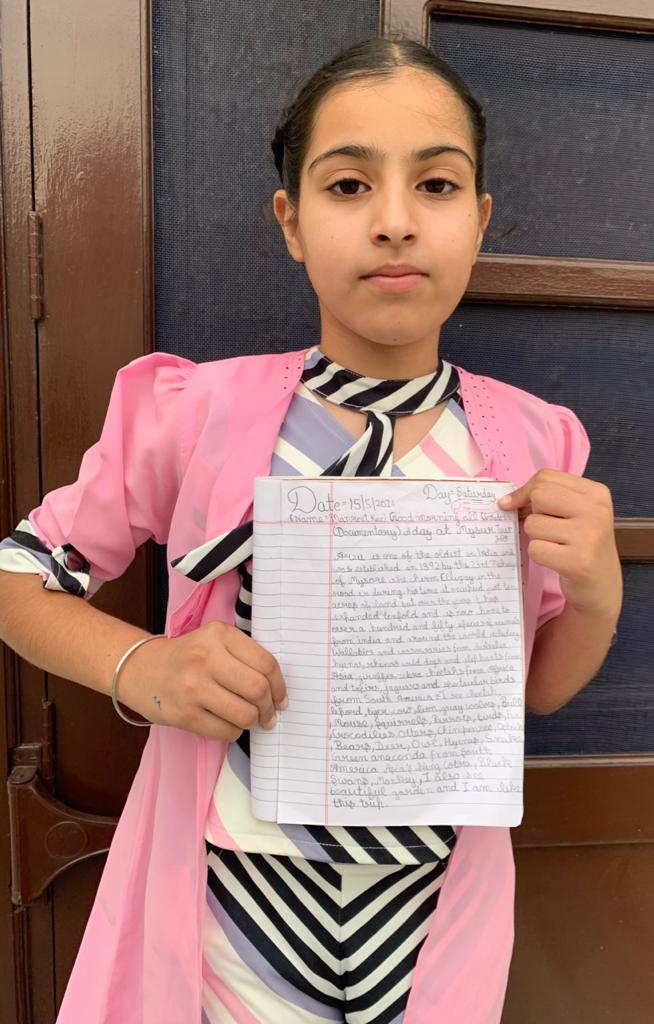 Date = 15/5/2021 Day = Saturday
(Name = Manreet Kaur) Good morning all
(Documentary) A day at Mysur Tour
is one of the oldest in India and
was established in 1892 by the 23rd
of Mysore in the
during his time it occupied just
acres of land but over the years it has
expanded tenfold and is now home to
over a hundred and fifty species of animals
from india and around the world including
Wallabies and cassowaries from Australia
hyenas, rhinos wild dogs and elephants from
Asia, giraffes, zebra cheetahs from africa
and tapirs, jaguars and spectacular birds
from South America. I see cheetah
lepord, tiger, cow, lion, gray wolves, Bull
Mouse, squirrels, parrots, birds,
Crocodilies Otters, Chimpanzee,
Bears, Deer, Owl, Hyenas,
Green anaconda from South
America Asia's king Cobra, Black
Swans, Monkey, I also see
beautiful garden and I am like
this trip.